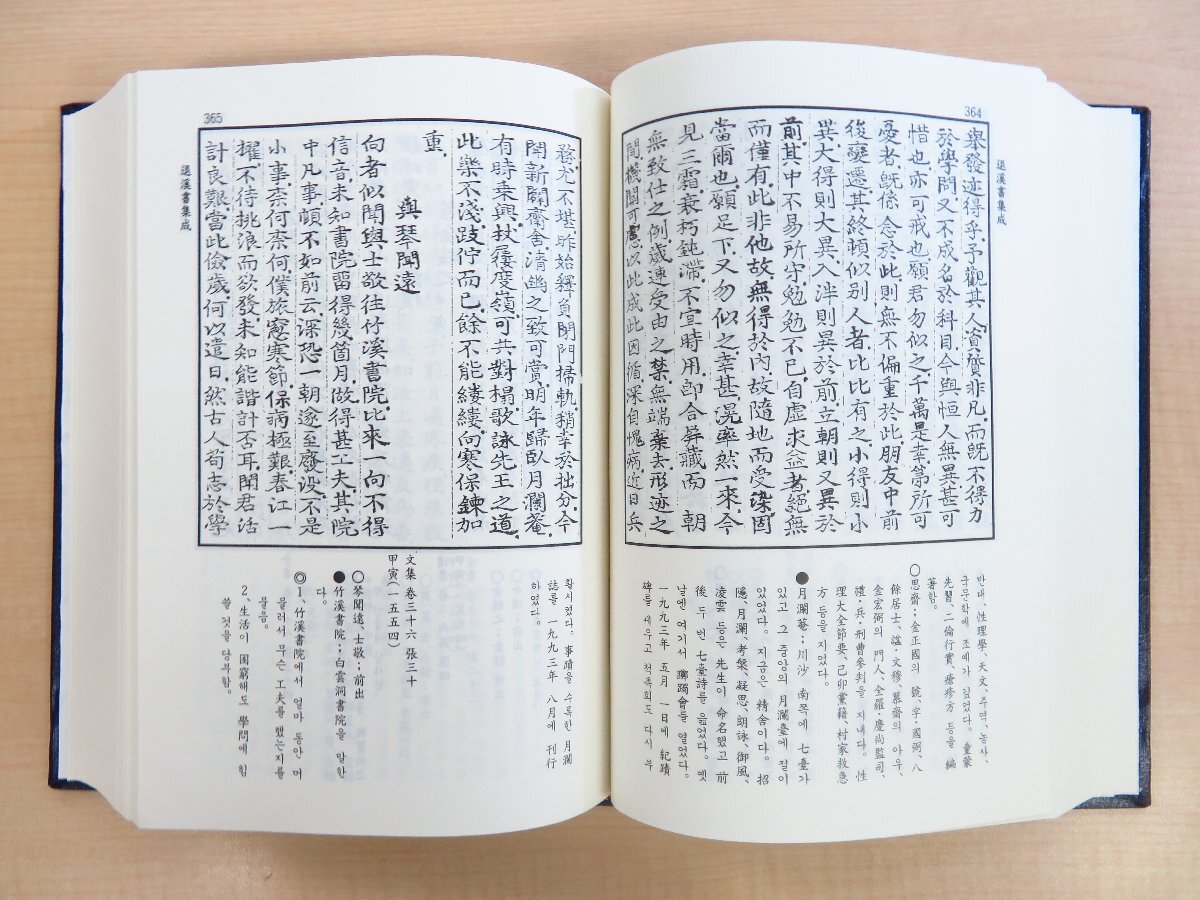 364
退溪書集成
舉發迹得乎予觀其人資質非凡而旣不得力
於學問又不成名於科目今與恒人無異甚可
惜也亦可戒也願君勿似之千萬是幸第所可
憂者旣係念於此則無不偏重於此朋友中前
後變遷其終頓似別人者比比有之小得則小
異大得則大異入泮則異於前立朝則又異於
前其中不易所守勉勉不已自虛求益者絕無
而僅有此非他故無得於內故隨地而受染固
當爾也願足下又勿似之幸甚滉率然一來今
見三霜衰朽鈍滯不宜時用卽合屏藏而 朝
無致仕之例歲速受由之禁無端棄去形迹之
間機關可慮以此成此因循深自愧病近日兵
반대、性理學、天文、주역、농사、
국문학에 조예가 깊었다。童蒙
先習、二倫行實、瘡疹方 등을 編
著함。
○思齋；金正國의 號、字·國弼、八
餘居士、謚·文穆、慕齋의 아우、
金宏弼의 門人、全羅·慶尙監司、
禮·兵·刑曹參判을 지내다。性
理大全節要、己卯黨籍、村家救急
方 등을 지었다。
●月瀾菴；川沙 南쪽에 七臺가
있고 그 중앙의 月瀾臺에 절이
있었다。지금은 精舍이다。招
隱、月瀾、考槃、凝思、朗詠、御風、
凌雲 등은 先生이 命名했고 前
後 두 번 七臺詩를 읊었다。옛
날엔 여기서 躑躅會를 열었다。
一九九三年 五月 一日에 紀蹟
碑를 세우고 척촉회도 다시 부
365
退溪書集成
務尤不堪昨始釋負閉門掃軌稍幸於拙分今
聞新闢齋舍淸幽之致可賞明年歸臥月瀾菴
有時乘興扶屨度嶺可共對榻歌詠先王之道
此樂不淺跂佇而已餘不能縷縷向寒保鍊加
重
與琴聞遠
向者似聞與士敬往竹溪書院比來一向不得
信音未知書院留得幾箇月做得甚工夫其院
中凡事頓不如前云深恐一朝遂至廢沒不是
小事奈何奈何僕旅窓寒節保病極艱春江一
擢不待挑浪而欲發未知能諧計否耳聞君活
計良艱當此儉歲何以遣日然古人苟志於學
활시켰다。事蹟을 수록한 月瀾
誌를 一九九三年 八月에 刊行
하였다。
文集 卷三十六 張三十
甲寅(一五五四)
○琴聞遠、士敬；前出
●竹溪書院；白雲洞書院을 말한
다。
◎1、竹溪書院에서 얼마 동안 머
물러서 무슨 工夫를 했는지를
물음。
2、生活이 困窮해도 學問에 힘
쓸 것을 당부함。